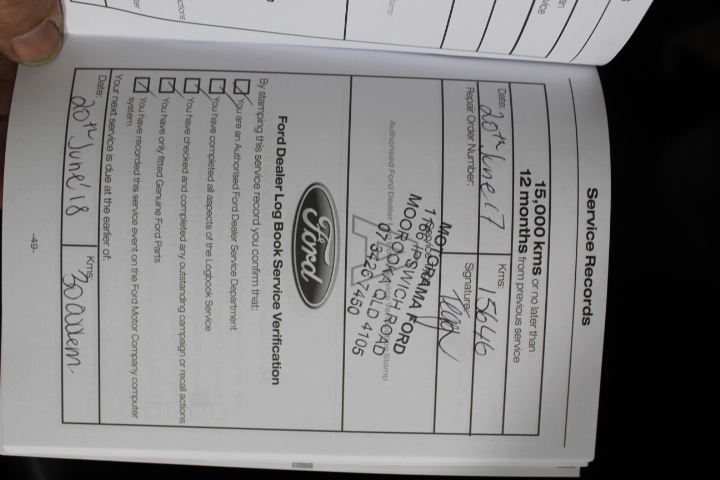 Service Records
15,000 kms or no later than
12 months from previous service
Date: 20th June 17
Kms: 15646
Repair Order Number:
Signature:
Authorised Ford Dealer
Stamp
MOTORAMA FORD
IPSWICH ROAD
MOOROOKA QLD 4105
Ford
Ford Dealer Log Book Service Verification
By stamping this service record you confirm that:
You are an Authorised Ford Dealer Service Department
You have completed all aspects of the Logbook Service
You have checked and completed any outstanding campaign or recall actions
You have only fitted Genuine Ford Parts
You have recorded this service event on the Ford Motor Company computer
system
Your next service is due at the earlier of:
Date: 20th June'18
Kms:
-49-